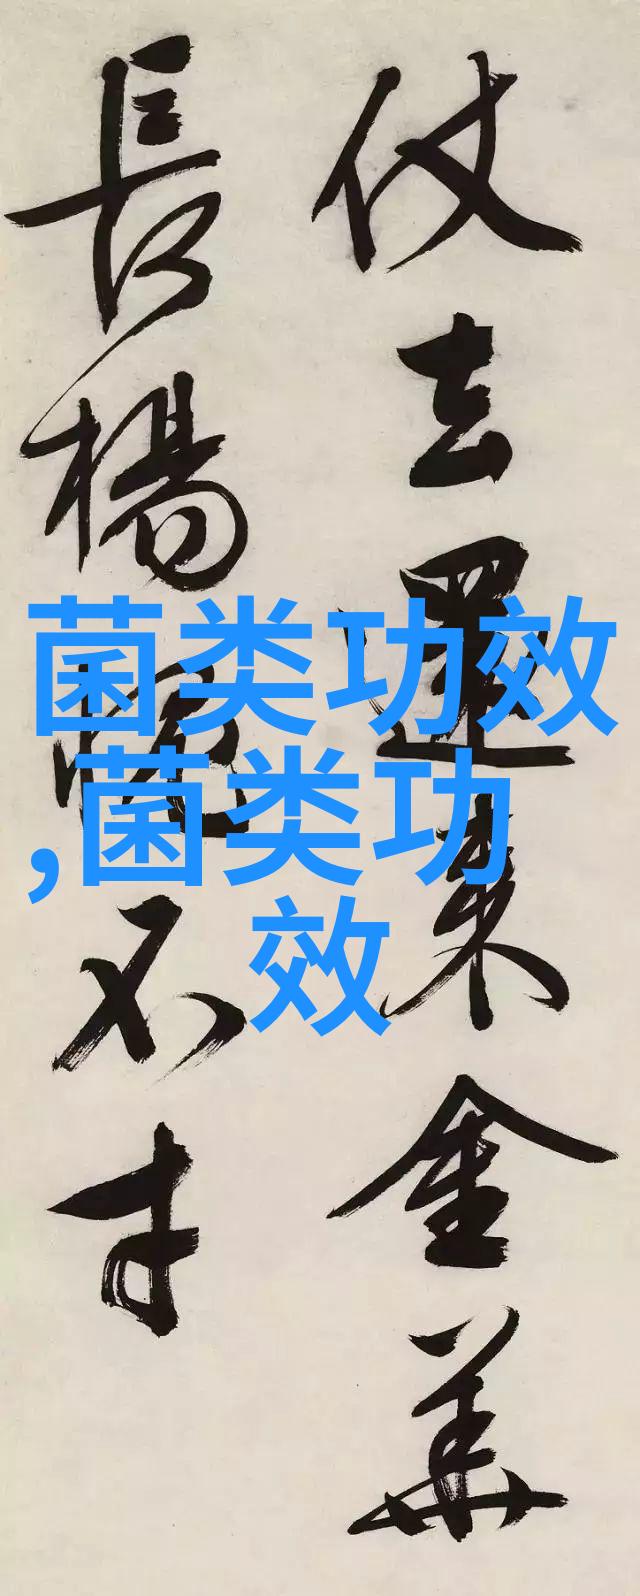 仗去還来金華
長楊不才
菌类功效
,菌类功
效